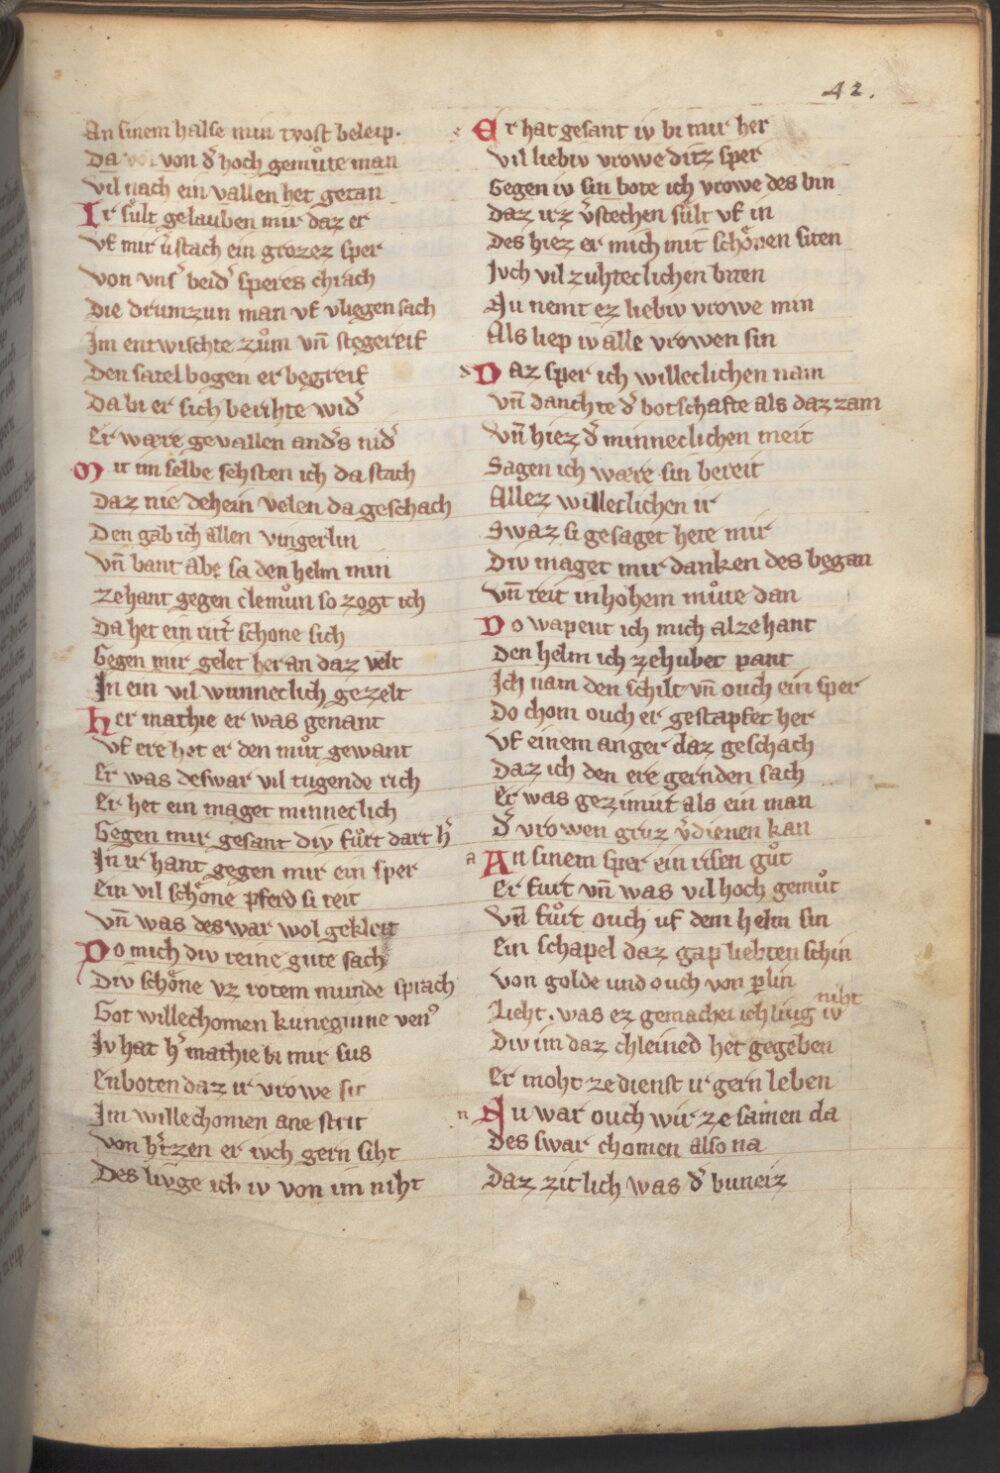 42.
An sinem halse min tyost beleip.
Da von dˀ hoch gemuͦte man
Vil nach ein vallen het getan
Ir sult gelauben mir daz er
Vf mir vˀstach ein grozez sper
Von vnsˀ beidˀ speres chrach
Die drumzun man vf vliegen sach
Im entwischte zuͦm vn̄ stegereif
Den satelbogen er begreif
Da bi er sich berihte widˀ
Er wære gevallen andˀs nidˀ
Mit im selbe sehsten ich da stach
Daz nie dehein velen da geschach
Den gab ich allen vingerlin
Vn̄ bant abe sa den helm min
Zehant gegen clemuͦn so zogt ich
Da het ein ritˀ schone sich
Gegen mir gelet her an daz velt
In ein vil wunneclich gezelt
Her mathie er was genant
Vf ere het er den muͦt gewant
Er was deswar vil tugende rich
Er het ein maget minneclich
Gegen mir gesant div fuͦrt dart hˀ
In ir hant gegen mir ein sper
Ein vil schoͤne pferd si reit
Vn̄ was deswar wol gekleit
Do mich div reine gute sach
Div schoͤne vz rotem munde sprach
Got willechomen kuneginne venˀ
Iv hat hˀ mathie bi mir sus
Enboten daz ir vrowe sit
Im willechomen ane strit
Von hˀtzen er ivch gern siht
Des livge ich iv von im niht
e Er hat gesant iv bi mir her
Vil liebiv vrowe ditz sper
Gegen iv sin bote ich vrowe des bin
Daz irz vˀstechen suͤlt vf in
Des hiez er mich mit schoͤnen siten
Ivch vil zuhteclichen biten
Nu nemt ez liebiv vrowe min
Als liep iv alle vrowen sin
d Daz sper ich willeclichen nam
Vn̄ danchte dˀ botschafte als daz zam
Vn̄ hiez dˀ minneclichen meit
Sagen ich wære sin bereit
Allez willeclichen ir
Swaz si gesaget hete mir
Div maget mir danken des began
Vn̄ reit in hohem muͦte dan
Do wapent ich mich alzehant
Den helm ich ze hubet pant
Ich nam den schilt vn̄ ouch ein sper
Do chom ouch er gestapfet her
Vf einem anger daz geschach
Daz ich den ere gernden sach
Er was gezimirt als ein man
Dˀ vrowen gruz vˀdienen kan
a An sinem sper ein risen guͦt
Er fuͦrt vn̄ was vil hoch gemuͦt
Vn̄ fuͦrt ouch uf dem helm sin
Ein schapel daz gap liehten schin
Von golde und ouch von perlin
Lieht. was ez gemachet ich liug iv niht
Div im daz chleined het gegeben
Er moht ze dienst ir gern leben
n Nu war ouch wir ze samen da
Des swar chomen also na
Daz zitlich was dˀ buneiz